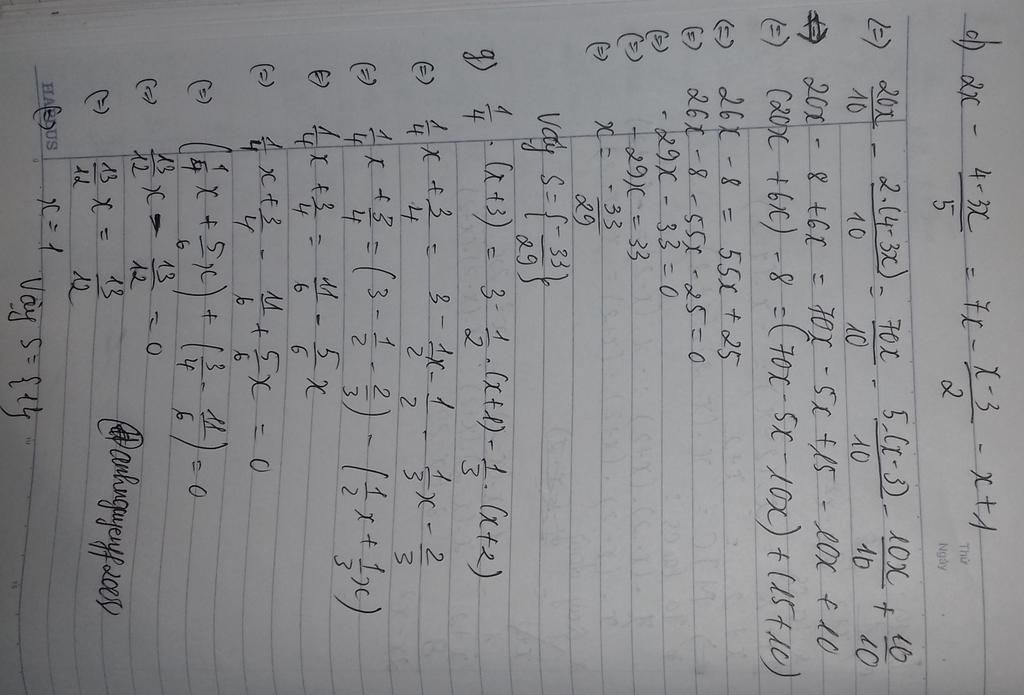 Thứ
Ngày
d) 2x - \frac{4-3x}{5} = 7x - \frac{x-3}{2} - x+1
(=) \frac{20x}{10} - \frac{2.(4-3x)}{10} = \frac{70x}{10} - \frac{5.(x-3)}{10} - \frac{10x}{10} + \frac{10}{10}
(=) 20x - 8 + 6x = 70x - 5x + 15 - 10x + 10
(=) (20x + 6x) - 8 = (70x - 5x - 10x) + (15+10)
(=) 26x - 8 = 55x + 25
(=) 26x - 8 - 55x - 25 = 0
(=) -29x - 33 = 0
(=) -29x = 33
(=) x = \frac{-33}{29}
Vậy S = {-\frac{33}{29}}
g) \frac{1}{4}.(x+3) = 3 - \frac{1}{2}.(x+1) - \frac{1}{3}.(x+2)
(=) \frac{1}{4}x + \frac{3}{4} = 3 - \frac{1}{2}x - \frac{1}{2} - \frac{1}{3}x - \frac{2}{3}
(=) \frac{1}{4}x + \frac{3}{4} = (3 - \frac{1}{2} - \frac{2}{3}) - (\frac{1}{2}x + \frac{1}{3}x)
(=) \frac{1}{4}x + \frac{3}{4} = \frac{11}{6} - \frac{5}{6}x
(=) \frac{1}{4}x + \frac{3}{4} - \frac{11}{6} + \frac{5}{6}x = 0
(=) (\frac{1}{4}x + \frac{5}{6}x) + (\frac{3}{4} - \frac{11}{6}) = 0
(=) \frac{13}{12}x - \frac{13}{12} = 0
(=) \frac{13}{12}x = \frac{13}{12}
(=) x = 1 Vậy S = {1}